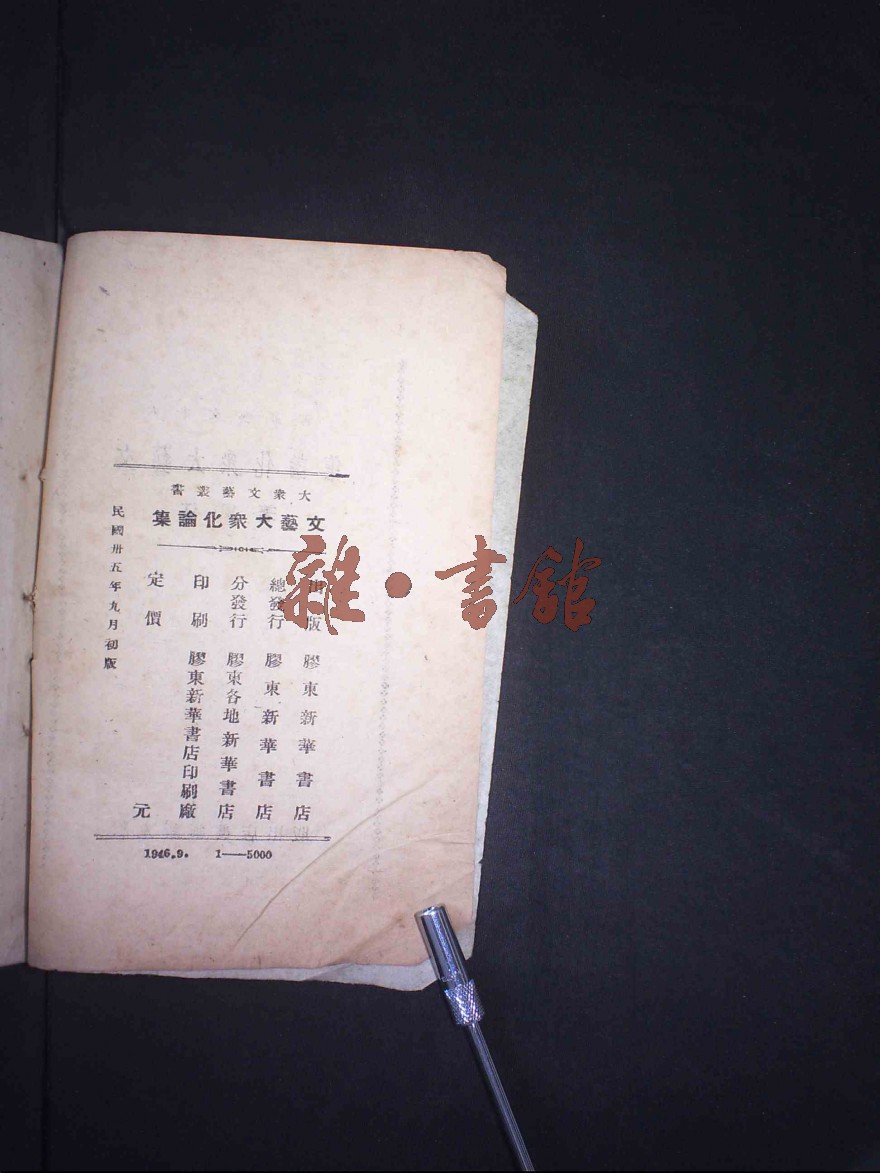 大衆文藝叢書
文藝大衆化論集
出版 膠東新華書店
總發行 膠東新華書店
分發行 膠東各地新華書店
印刷 膠東新華書店印刷廠
定價 元
民國卅五年九月初版
1946.9. 1——5000
雜·書館